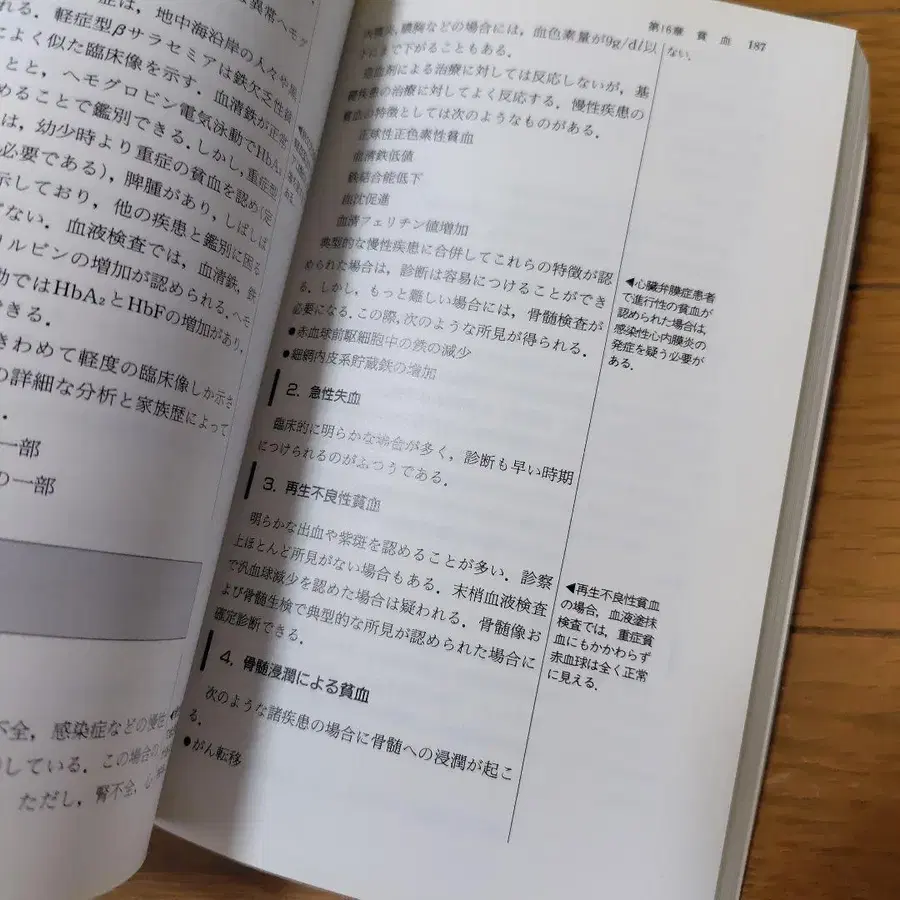 症は，地中海沿岸の人々や黒
れる．軽症型βサラセミアは鉄欠乏性貧
によく似た臨床像を示す．血清鉄が正常
とと，ヘモグロビン電気泳動でHbA₂
めることで鑑別できる．しかし，重症型
は，幼少時より重症の貧血を認め（定
必要である），脾腫があり，しばしば
示しており，他の疾患と鑑別に困る
ない．血液検査では，血清鉄，
リルビンの増加が認められる．ヘモ
動ではHbA₂とHbFの増加があり，
できる．
きわめて軽度の臨床像しか示さ
の詳細な分析と家族歴によって
の一部
の一部
不全，感染症などの慢性
している．この場合の
ただし，腎不全，心
第16章 貧血 187
膿胸などの場合には，血色素量が9g/dl以
下にまで下がることはない．
造血剤による治療に対しては反応しないが，基
礎疾患の治療に対してよく反応する．慢性疾患の
貧血の特徴としては次のようなものがある．
正球性正色素性貧血
血清鉄低値
鉄結合能低下
血沈促進
血清フェリチン値増加
典型的な慢性疾患に合併してこれらの特徴が認
められた場合は，診断は容易につけることができ
る．しかし，もっと難しい場合には，骨髄検査が
必要になる．この際，次のような所見が得られる．
●赤血球前駆細胞中の鉄の減少
●細網内皮系貯蔵鉄の増加
2. 急性失血
臨床的に明らかな場合が多く，診断も早い時期
につけられるのがふつうである．
3. 再生不良性貧血
明らかな出血や紫斑を認めることが多い．診察
上ほとんど所見がない場合もある．末梢血液検査
で汎血球減少を認めた場合は疑われる．骨髄像お
よび骨髄生検で典型的な所見が認められた場合に
確定診断できる．
4. 骨髄浸潤による貧血
次のような諸疾患の場合に骨髄への浸潤が起こ
る．
●がん転移
◀心臓弁膜症患者
で進行性の貧血が
認められた場合は，
感染性心内膜炎の
発症を疑う必要が
ある．
◀再生不良性貧血
の場合，血液塗抹
検査では，重症貧
血にもかかわらず
赤血球は全く正常
に見える．